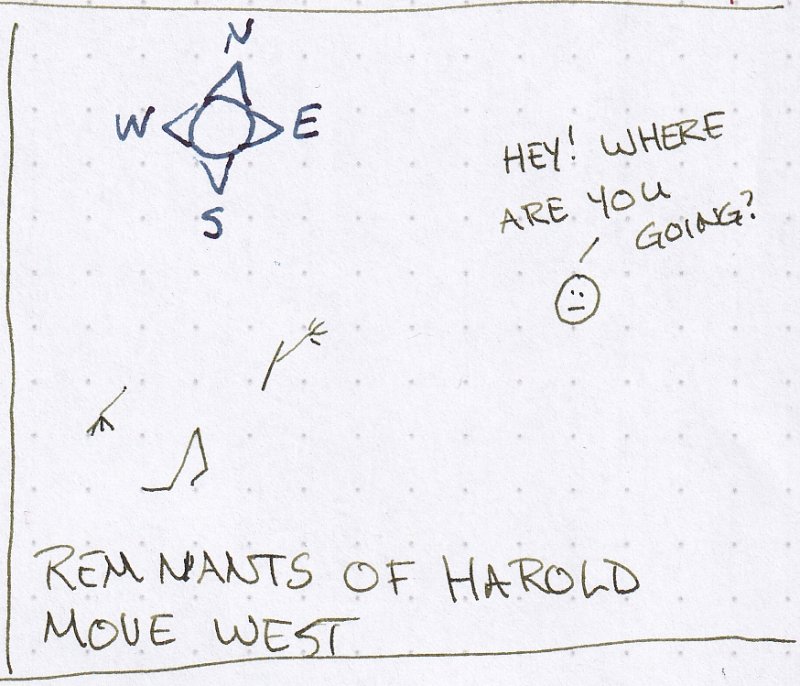 N
W E
S
HEY! WHERE
ARE YOU
GOING?
REMNANTS OF HAROLD
MOVE WEST